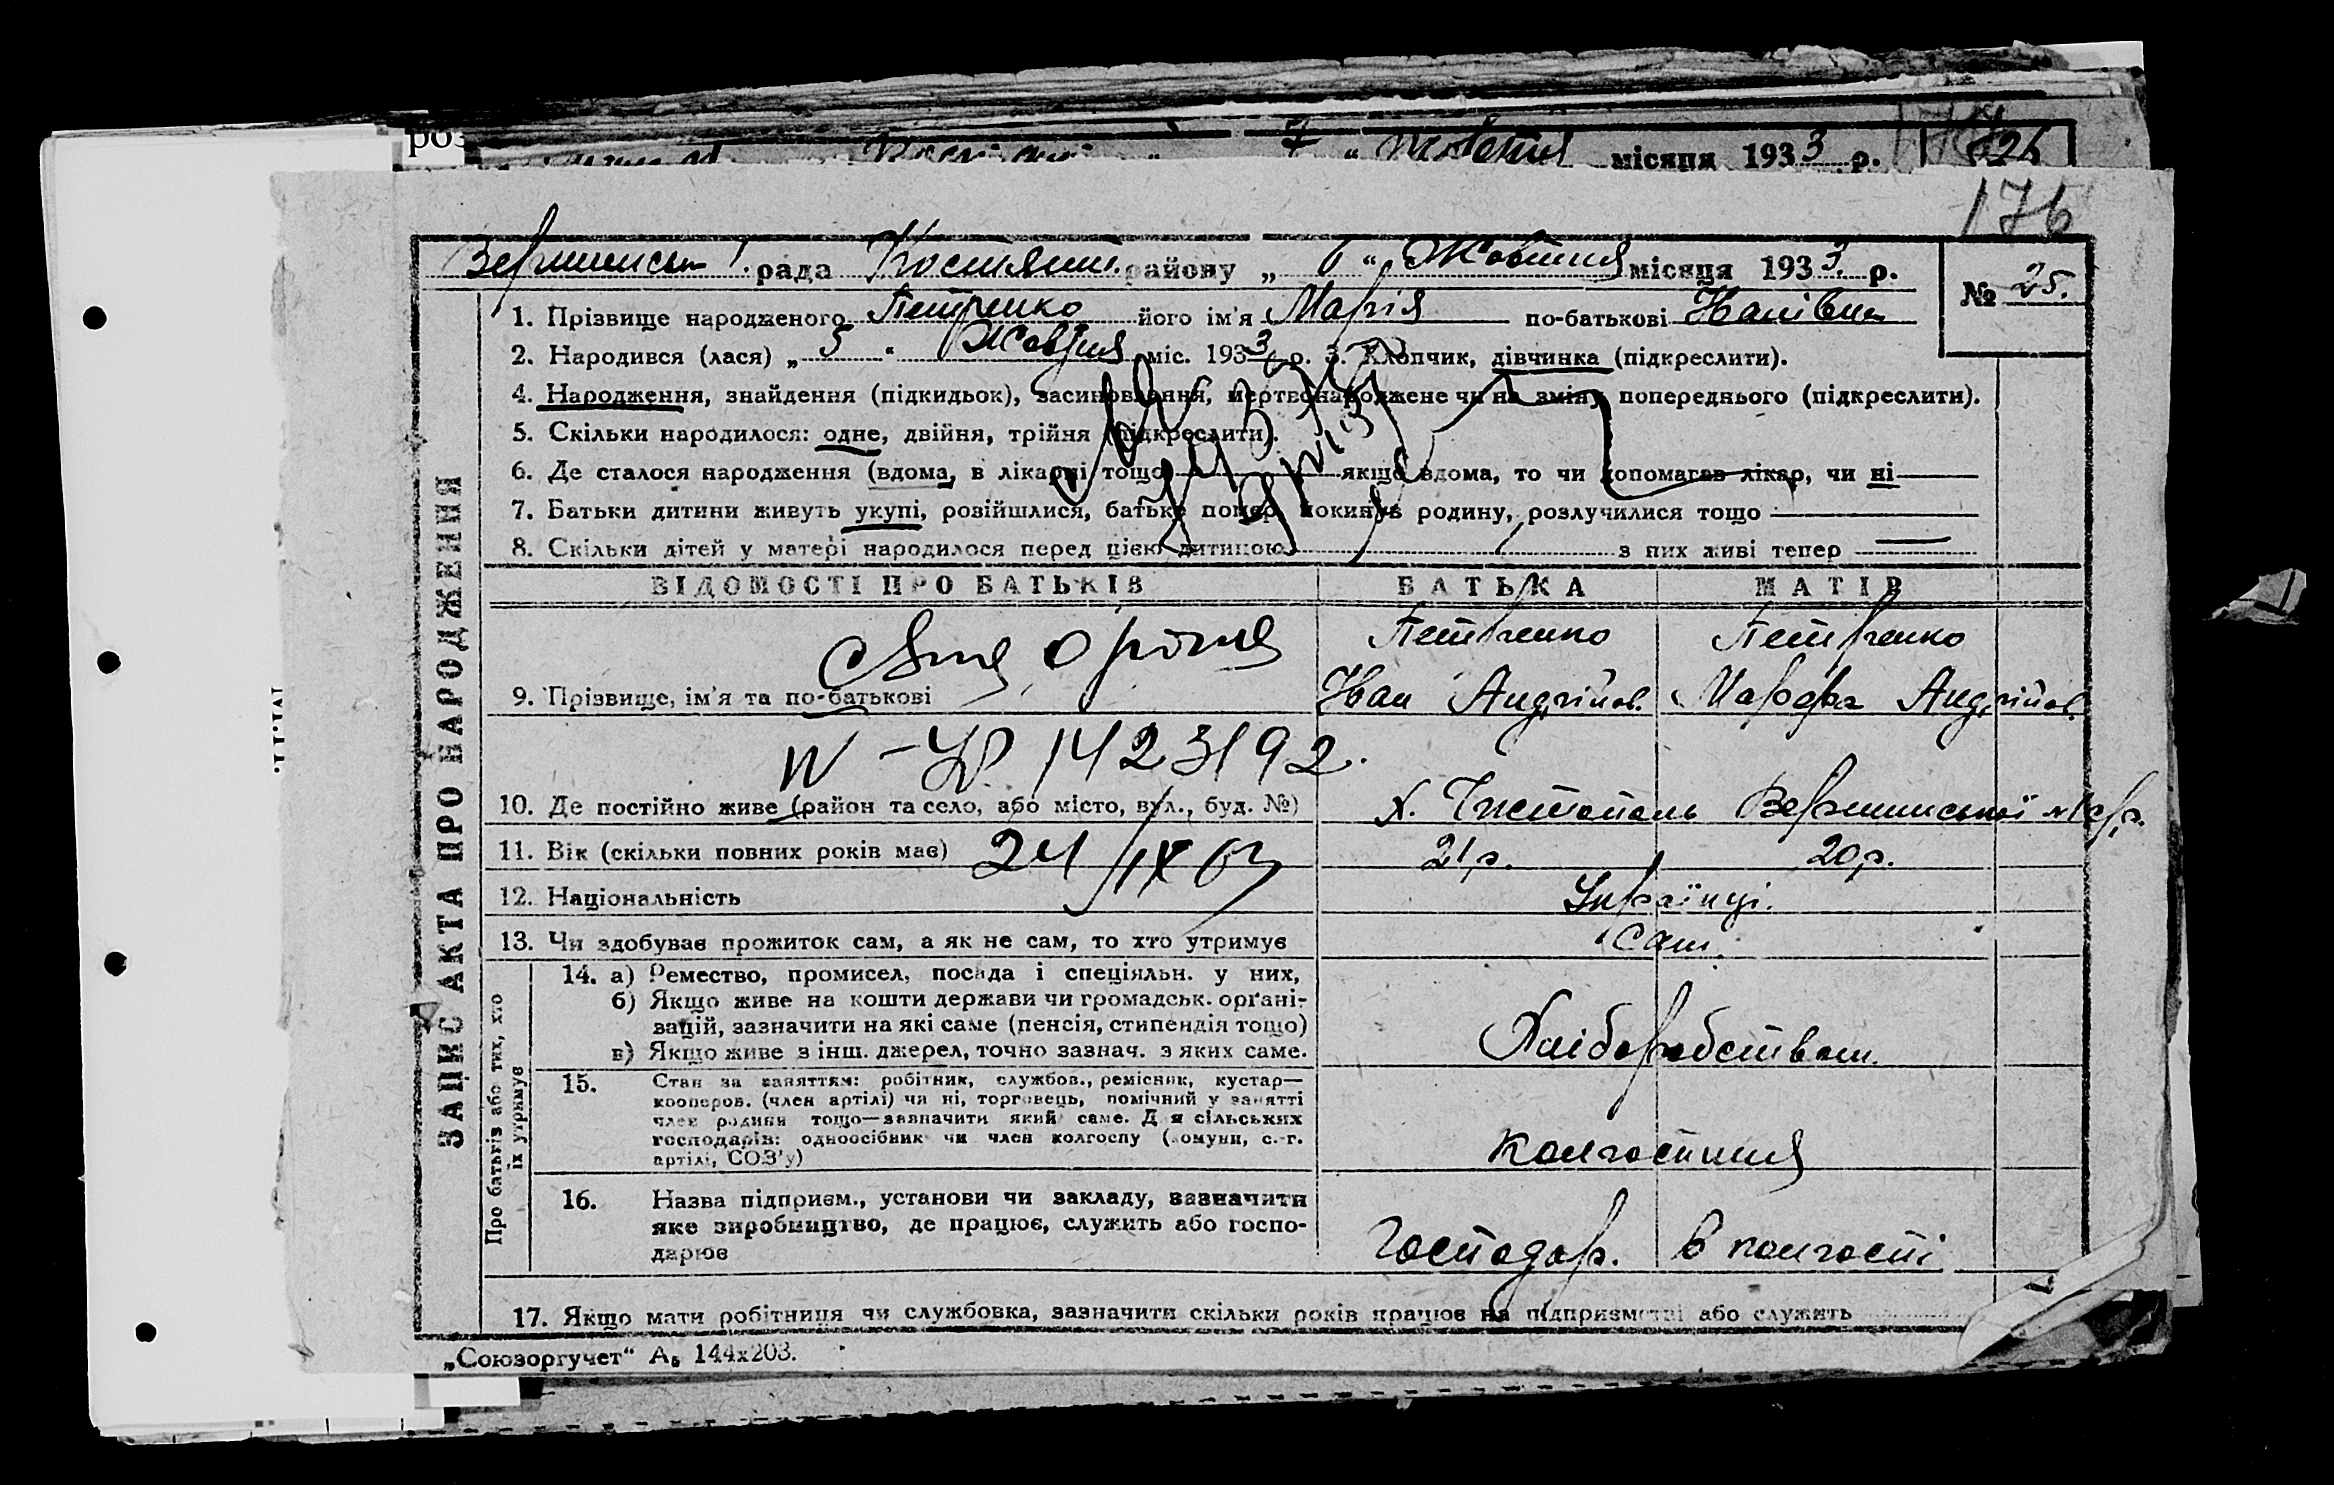 роз
7 " Жовтня місяця 1933 р. 26
176
рада районну „ 6 " Жовтня місяця 1933. р.
№ 25.
1. Прізвище народженого Петренко його ім'я Марія по-батькові Іванівна
2. Народився (лася) „ 5 " Жовтня міс. 1933 р. 3. Хлопчик, дівчинка (підкреслити).
4. Народження, знайдення (підкидьок), засиновлення, мертвонароджене чи на зміну попереднього (підкреслити).
5. Скільки народилося: одне, двійня, трійня (підкреслити).
6. Де сталося народження (вдома, в лікарні тощо якщо вдома, то чи допомагав лікар, чи ні
7. Батьки дитини живуть укупі, розійшлися, батько помер, покинув родину, розлучилися тощо
8. Скільки дітей у матері народилося перед цією дитиною з них живі тепер —
ЗАПИС АКТА ПРО НАРОДЖЕННЯ
ВІДОМОСТІ ПРО БАТЬКІВ БАТЬКА МАТІР
Петренко Петренко
9. Прізвище, ім'я та по-батькові Іван Андрійов. Марфа Андрійов.
IV – 1423192.
10. Де постійно живе (район та село, або місто, вул., буд. №) х. Чистополь Вершинської с/р.
11. Вік (скільки повних років має) 24/IX 63 21 р. 20 р.
12. Національність Українці.
13. Чи здобуває прожиток сам, а як не сам, то хто утримує Сам.
Про батьків або тих, хто їх утримує
14. а) Ремество, промисел, посада і спеціяльн. у них,
б) Якщо живе на кошти держави чи громадськ. орґані-
зацій, зазначити на які саме (пенсія, стипендія тощо)
в) Якщо живе з інш. джерел, точно зазнач. з яких саме.
Хліборобством.
15. Стан за заняттям: робітник, службов., ремісник, кустар—
кооперов. (член артілі) чи ні, торговець, помічний у занятті
член родини тощо—зазначити який саме. Для сільських
господарів: одноосібник чи член колгоспу (комуни, с.-г.
артілі, СОЗ'у)
колгоспник
16. Назва підприєм., установи чи закладу, зазначити
яке виробництво, де працює, служить або госпо-
дарює
Господар. в колгоспі
17. Якщо мати робітниця чи службовка, зазначити скільки років працює на підприємстві або служить
„Союзоргучет" А₅ 144х203.